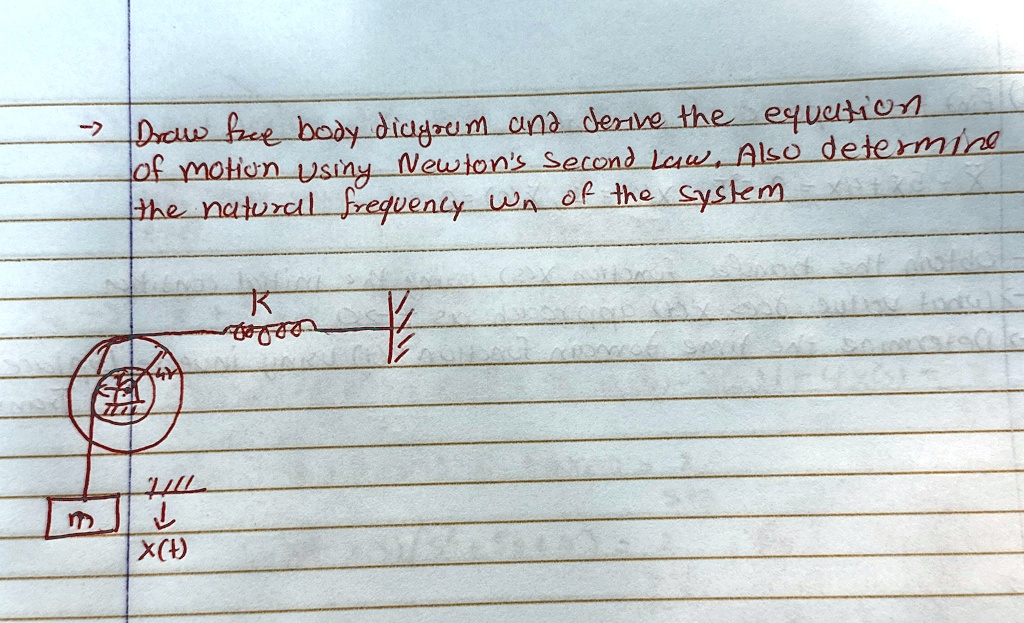 → Draw free body diagram and derive the equation
of motion using Newton's Second Law. Also determine
the natural frequency wn of the system
K
4r
m
x(t)